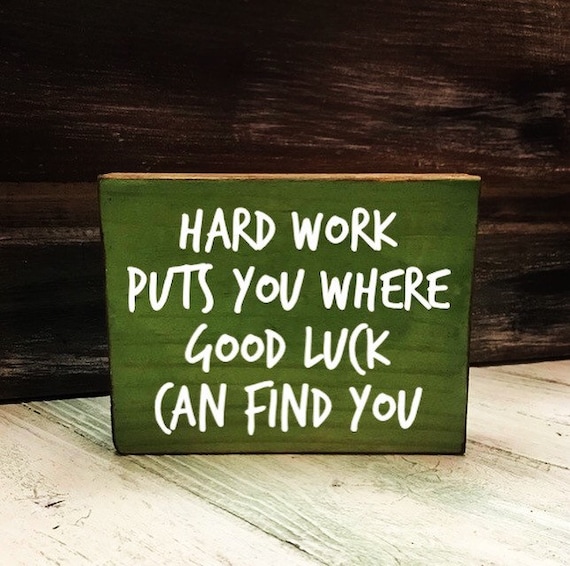 HARD WORK
PUTS YOU WHERE
GOOD LUCK
CAN FIND YOU